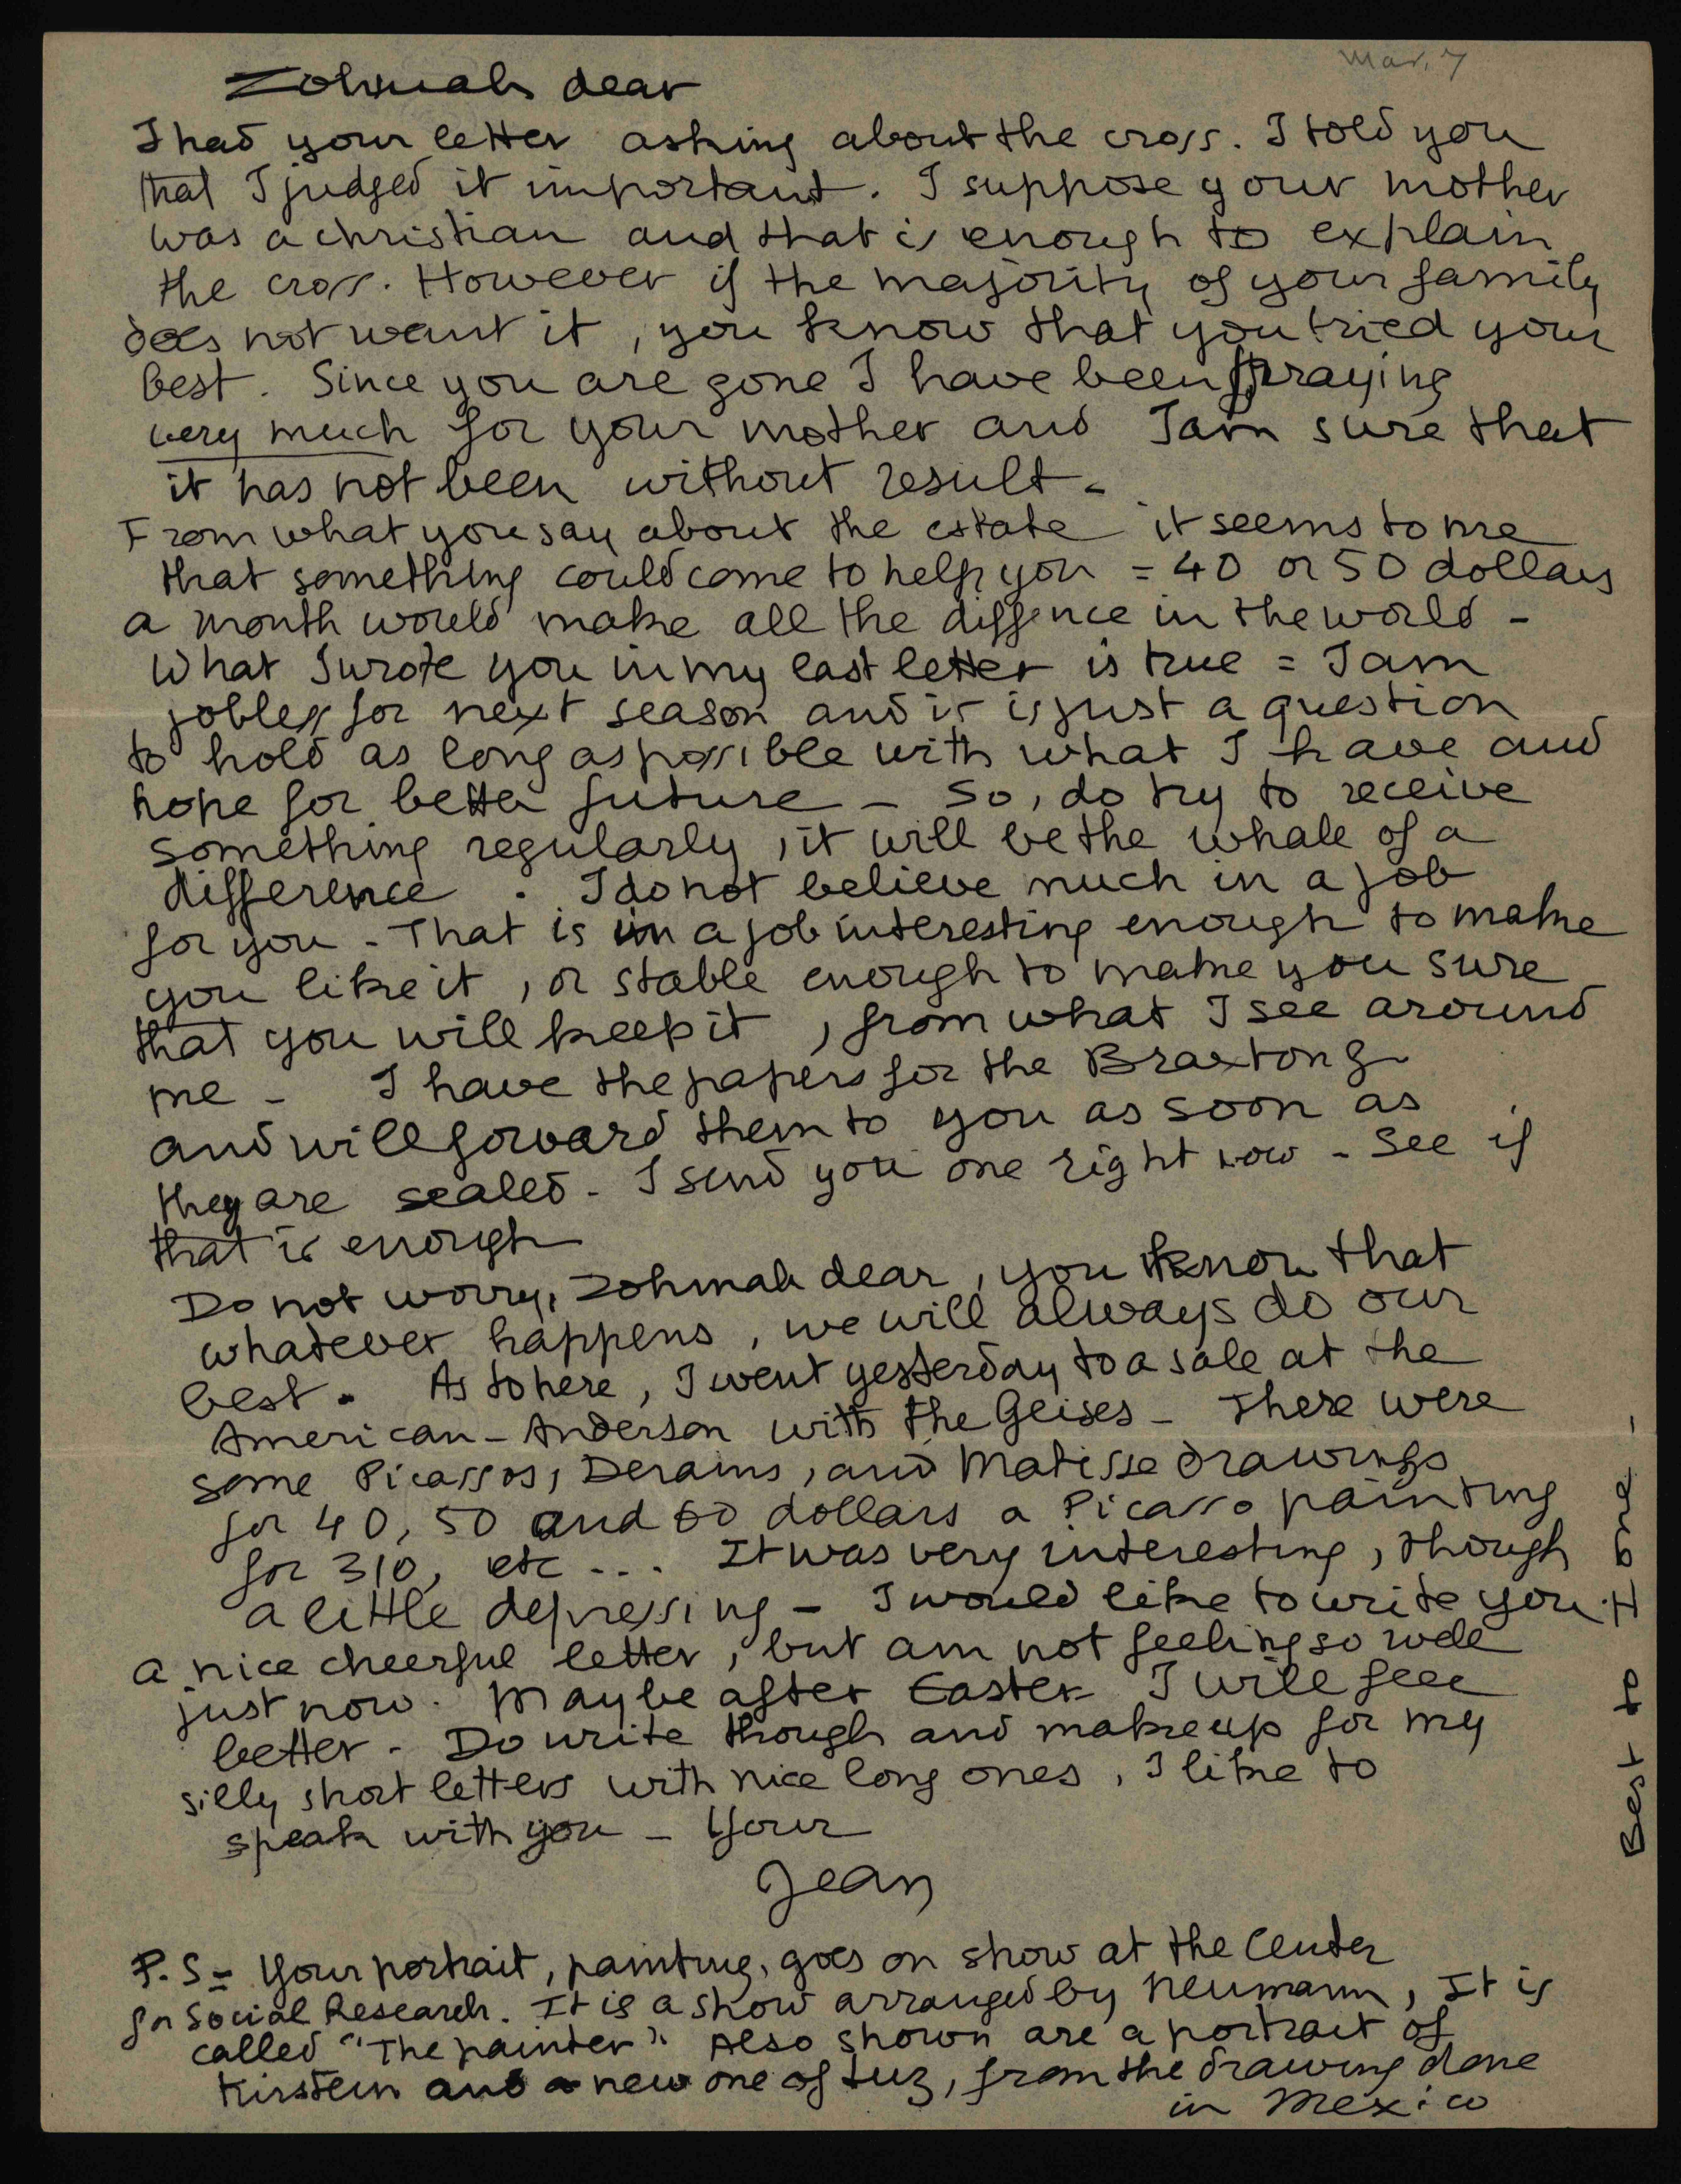 Mar. 7
Zohmah dear
I had your letter asking about the cross. I told you
that I judged it important. I suppose your mother
was a christian and that is enough to explain
the cross. However if the majority of your family
does not want it, you know that you tried your
best. Since you are gone I have been praying
very much for your mother and I am sure that
it has not been without result -
From what you say about the estate it seems to me
that something could come to help you = 40 or 50 dollars
a month would make all the diffence in the world -
What I wrote you in my last letter is true = I am
jobless for next season and it is just a question
to hold as long as possible with what I have and
hope for better future - So, do try to receive
something regularly, it will be the whale of a
difference. I do not believe much in a job
for you - That is in a job interesting enough to make
you like it, or stable enough to make you sure
that you will keep it, from what I see around
me - I have the papers for the Braxtong
and will forward them to you as soon as
they are sealed - I send you one right now - See if
that is enough
Do not worry, Zohmah dear, you know that
whatever happens, we will always do our
best. As to here, I went yesterday to a sale at the
American-Anderson with the Geises - There were
some Picassos, Derains, and Matisse drawings
for 40, 50 and 60 dollars a Picasso painting
for 310, etc ... It was very interesting, though
a little depressing - I would like to write you
a nice cheerful letter, but am not feeling so well
just now. Maybe after Easter I will feel
better - Do write though and make up for my
silly short letters with nice long ones, I like to
speak with you - Your
Jean
Best to Hone -
P.S - Your portrait, painting, goes on show at the Center
for Social Research. It is a show arranged by Neumann, It is
called "The painter". Also shown are a portrait of
Kirstein and a new one of Luz, from the drawing done
in Mexico